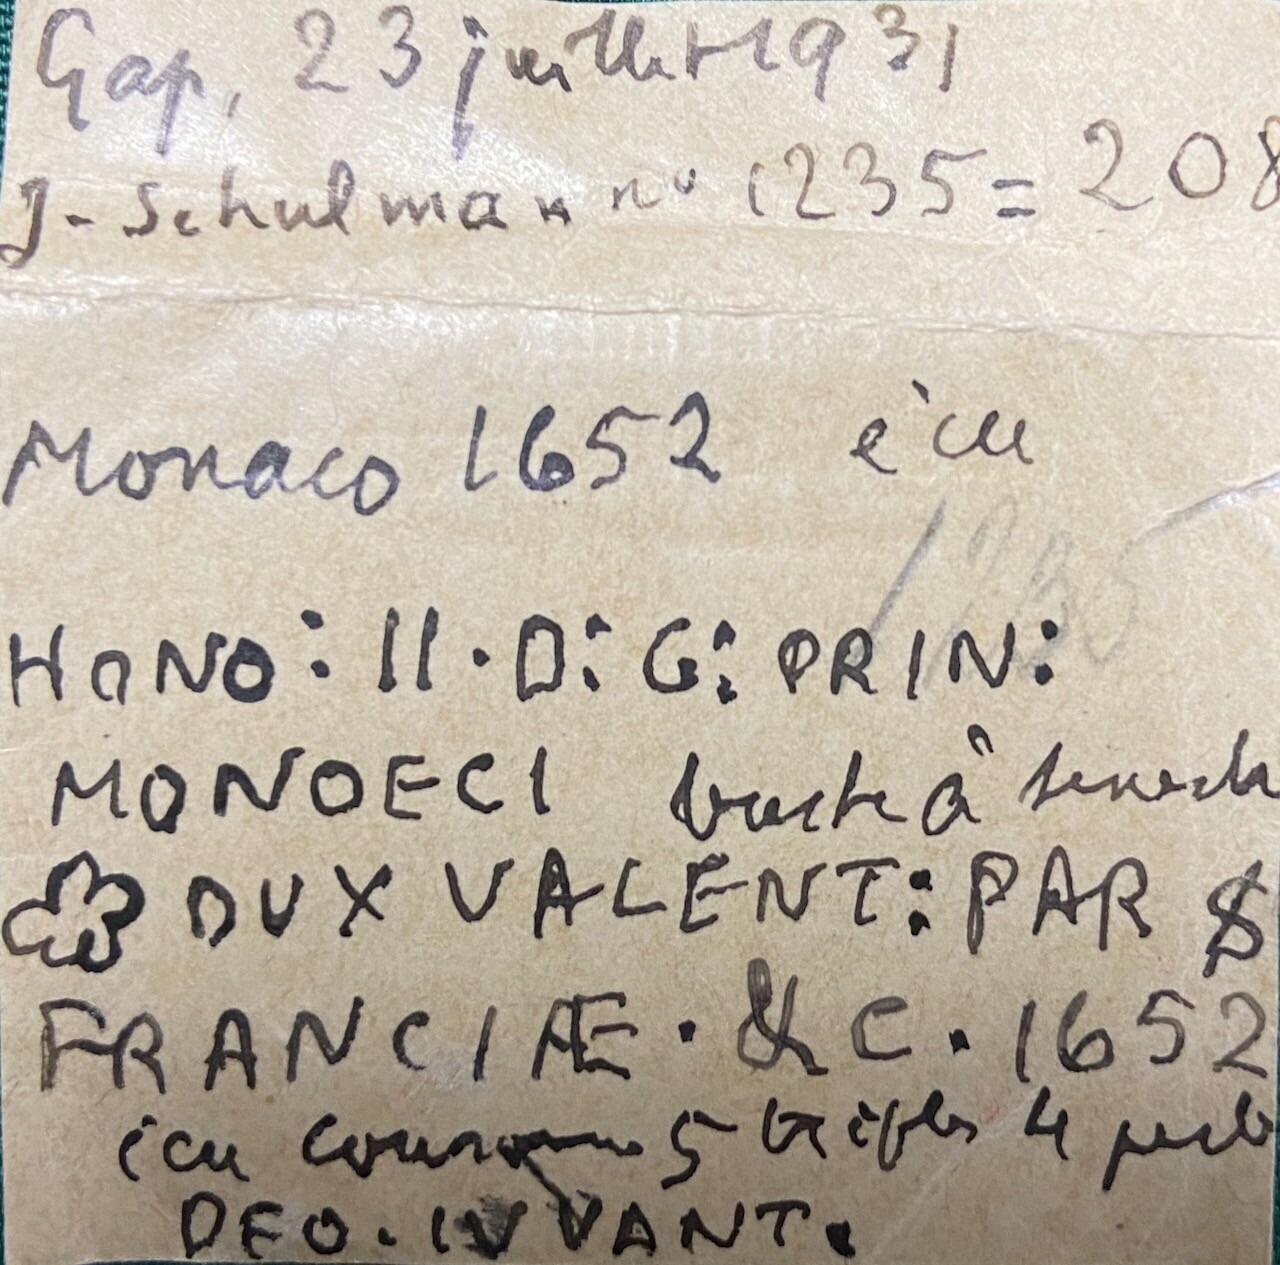 Gap, 23 juillet 1931
J. Schulman n° 1235 = 208
Monaco 1652 écu
1235
HONO: II · D: G: PRIN:
MONOECI buste à
DUX VALENT: PAR
FRANCIÆ · & C. 1652
écu couronne 5 trèfles 4
DEO. IUVANT.